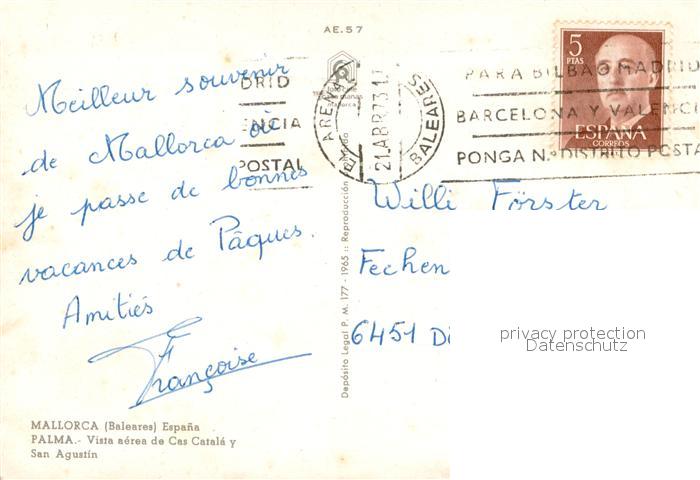 AE.57
Meilleur souvenir
de Mallorca où
je passe de bonnes
vacances de Pâques.
Amitiés
Françoise
MALLORCA (Baleares) España
PALMA.- Vista aérea de Cas Catalá y
San Agustín
Depósito Legal P. M. 177 - 1965 :: Reproducción
DRID
ENCIA
POSTAL
ARENA
21.ABR.73
BALEARES
PARA BILBAO MADRID
BARCELONA Y VALENCI
PONGA N.º DISTRITO POSTA
5
PTAS
ESPAÑA
CORREOS
Willi Förster
Fechen
6451 Di
privacy protection
Datenschutz